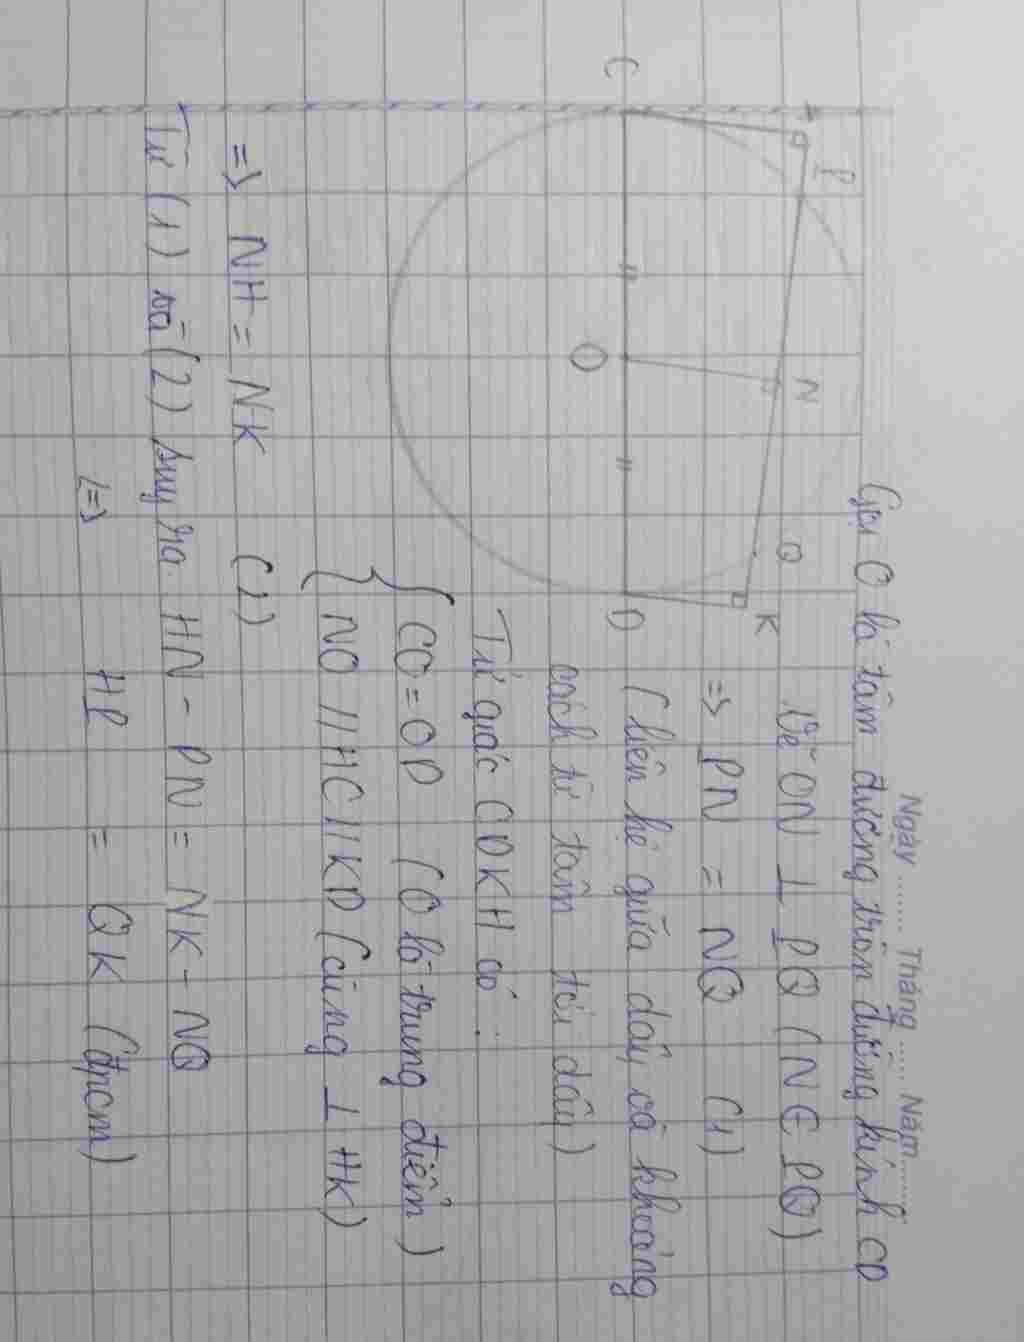 Ngày ........ Tháng ...... Năm..........
Gọi O là tâm đường tròn đường kính CD
Vẽ ON ⊥ PQ (N ∈ PQ)
=> PN = NQ (1)
(liên hệ giữa dây và khoảng
cách từ tâm tới dây)
Tứ giác CDKH có :
CO = OD (O là trung điểm)
NO // HC // KD (cùng ⊥ HK)
=> NH = NK (2)
Từ (1) và (2) suy ra HN - PN = NK - NQ
<=> HP = QK (đpcm)
H
P
N
Q
K
C
O
D